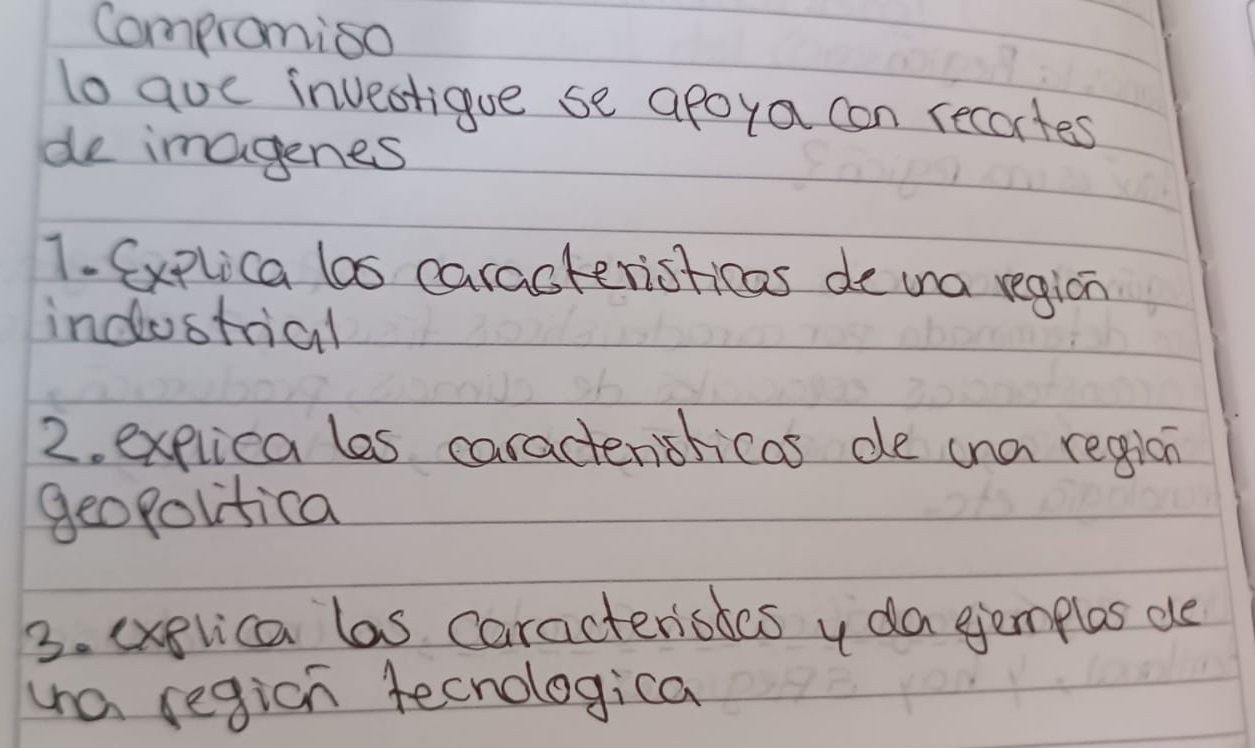 Compromiso
lo que investigue se apoya con recortes
de imagenes
1. Explica las caracteristicas de una región
industrial
2. explica las caracteristicas de una región
geopolitica
3. explica las caracteristcs y da ejemplos de
una región tecnologica